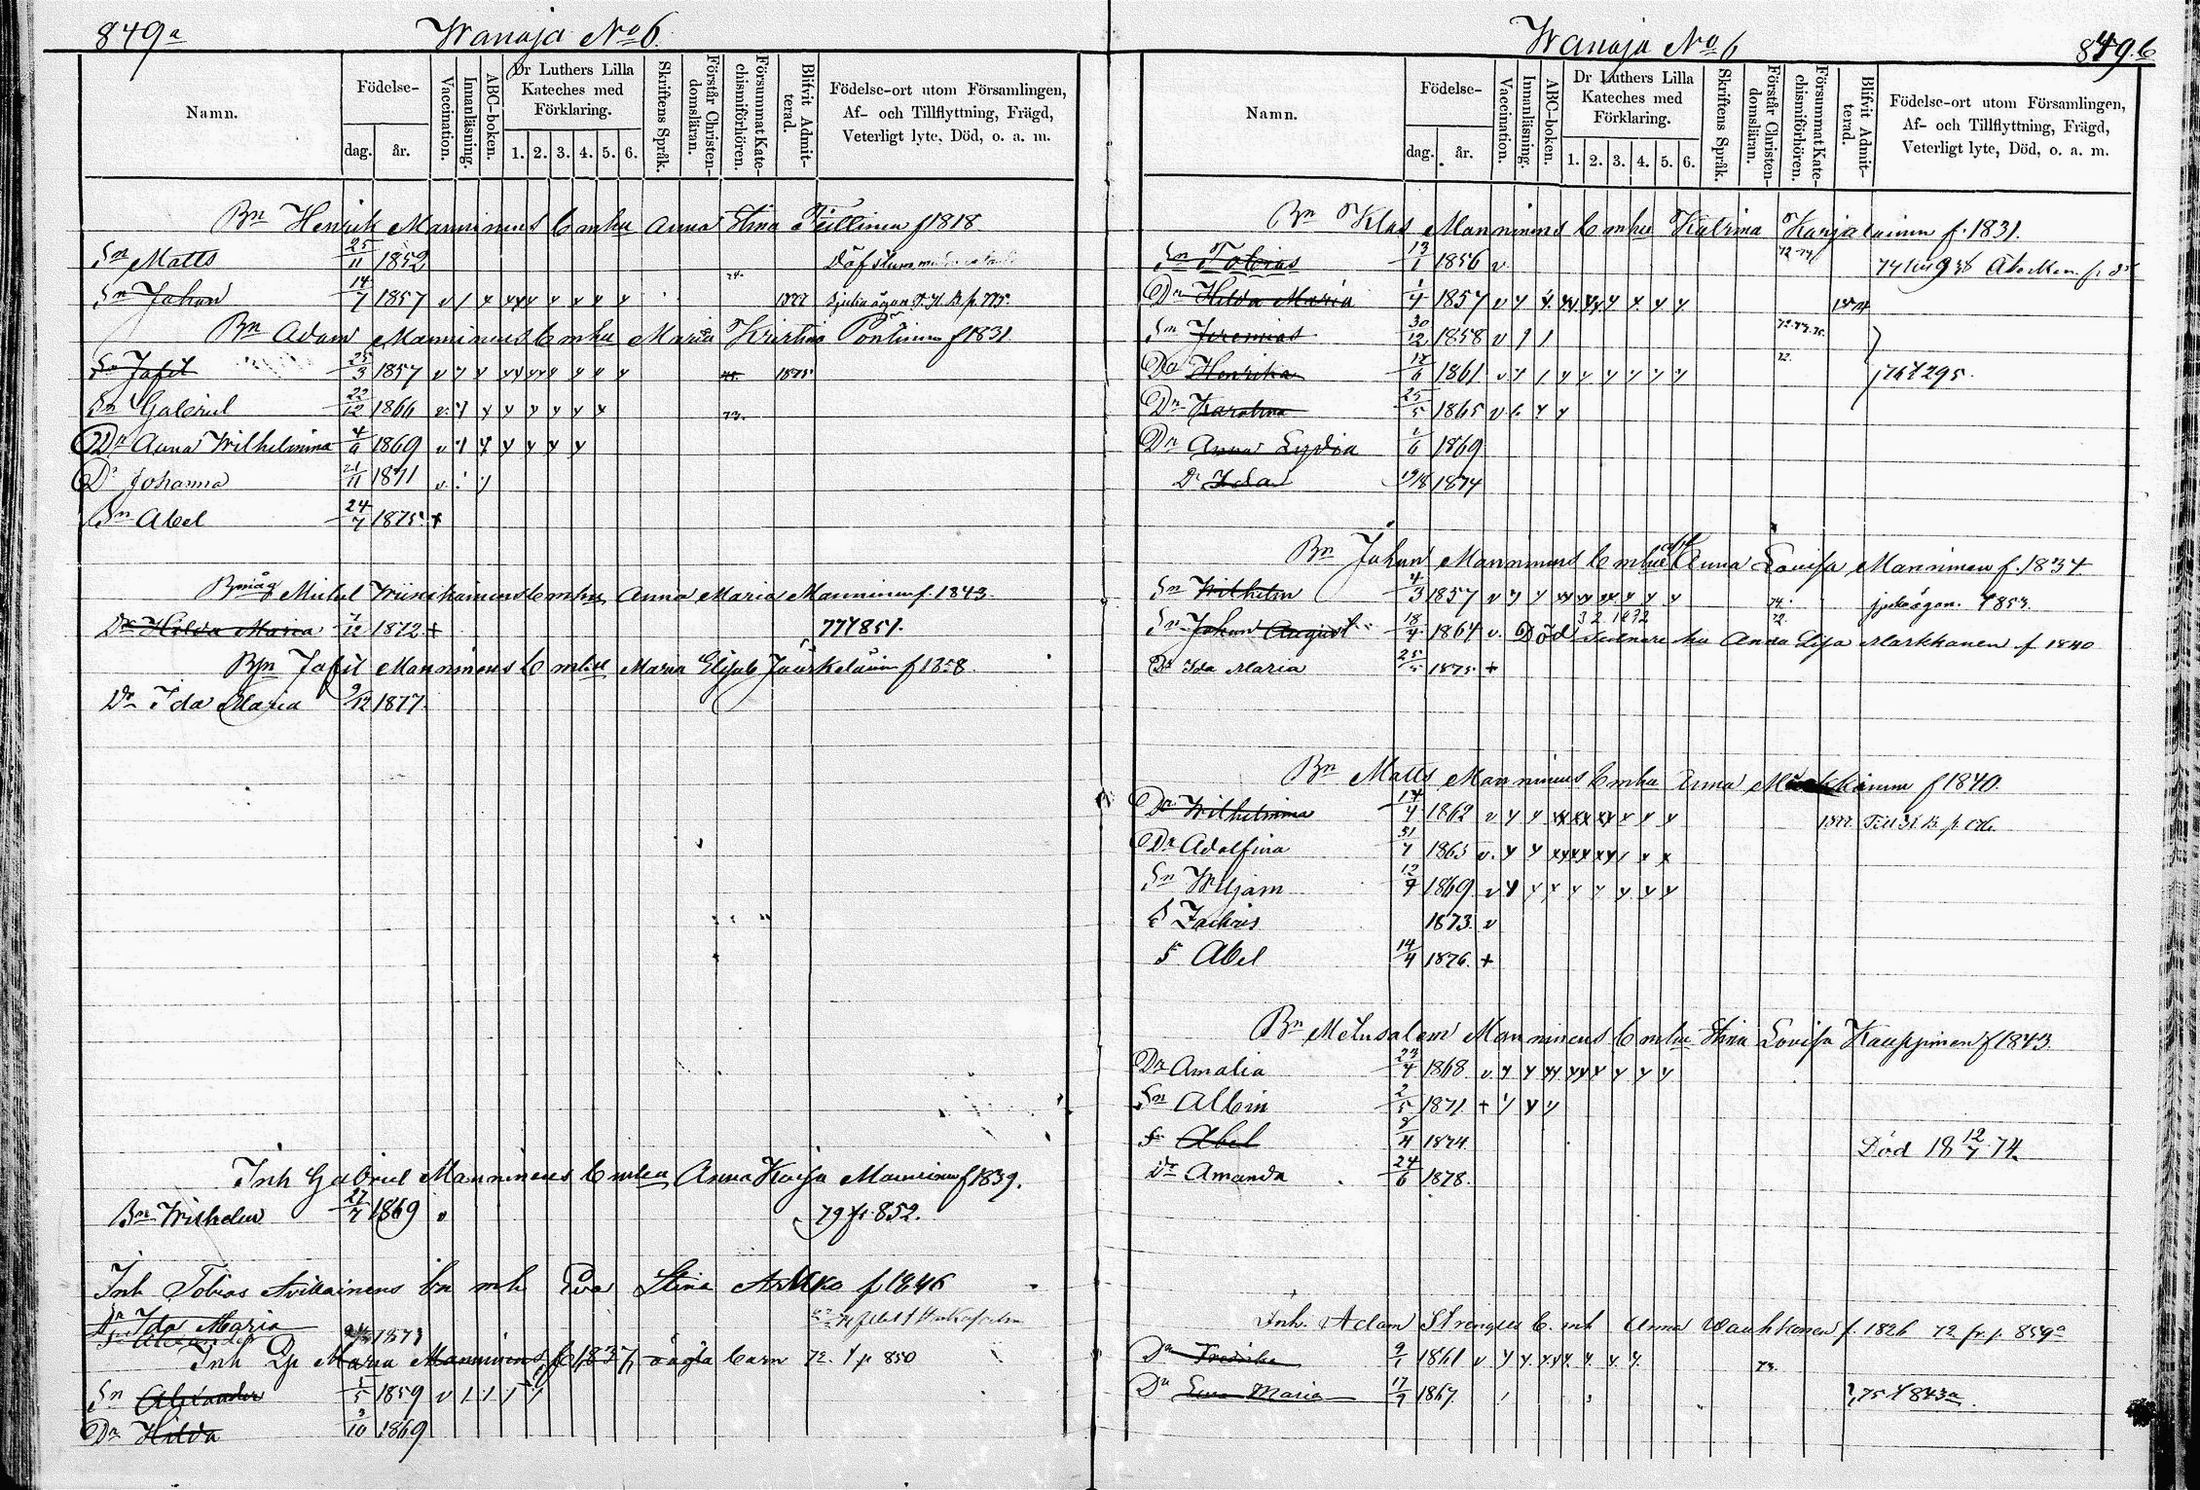 849a
Wanaja No 6.
Namn.
Födelse-
dag.
år.
Vaccination.
Innanläsning.
ABC-boken.
Dr Luthers Lilla Kateches med Förklaring.
1. 2. 3. 4. 5. 6.
Skriftens Språk.
Förstår Christendomsläran.
Försummat Katechismiförhören.
Blifvit Admitterad.
Födelse-ort utom Församlingen,
Af- och Tillflyttning, Frägd,
Veterligt lyte, Död, o. a. m.
Bn Henrik Manninens b mhu Anna Stina f 1818
Sn Matts 25/11 1852 Döfstum
Sn Johan 14/7 1857 v 1877
Bn Adam Manninens b mhu Maria Kristina Pöntinen f 1831.
Sn Jafet 25/3 1857 v 1875
Sn Gabriel 22/12 1866 v 73.
Dr Anna Wilhelmina 4/9 1869 v
Dr Johanna 21/11 1871 v
Sn Abel 24/7 1875 +
Bmåg Michel b mhu Anna Maria Manninen f. 1843
Dr Hilda Maria 7/12 1872 + 77 f 851.
Bn Jafet Manninens b mhu Maria Elisab Jääskeläinen f 1858.
Dr Ida Maria 9/12 1877.
Inh Gabriel Manninens b mhu Anna Kaisa Manninen f 1839.
Bn Wilhelm 27/7 1869 v 79 fr 852.
Inh Tobias bn mh Eva Stina f 1846
Dr Ida Maria
Sn Alexander 1873
Inh Dr Maria Manninens f 1837, oägta barn 72. f p 850
Sn Alexander 5/5 1859 v
Dr Hilda 3/10 1869
Wanaja No 6
849.b
Namn.
Födelse-
dag.
år.
Vaccination.
Innanläsning.
ABC-boken.
Dr Luthers Lilla Kateches med Förklaring.
1. 2. 3. 4. 5. 6.
Skriftens Språk.
Förstår Christendomsläran.
Försummat Katechismiförhören.
Blifvit Admitterad.
Födelse-ort utom Församlingen,
Af- och Tillflyttning, Frägd,
Veterligt lyte, Död, o. a. m.
Bn Klas Manninens b mhu Katrina Karjalainen f. 1831.
Sn Tobias 13/1 1856 v
Dr Hilda Maria 1/4 1857 v 1874
Sn Jeremias 30/12 1858 v
Dr Henrika 1861 v 72. 76 f 295.
Dr Karolina 25/5 1865 v
Dr Anna Lydia 1/6 1869
Dr Ida 19/8 1874
Bn Johan Manninens b mhu Anna Lovisa Manninen f. 1834.
Sn Wilhelm 4/3 1857 v f 853.
Sn Johan August 18/4 1864 v. Död Sednare hu Anna Lisa Markkanen f 1840
Dr Ida Maria 25/5 1875 +
Bn Matts Manninens b mhu Anna f 1840.
Dr Wilhelmina 14/4 1862 v 1877.
Dr Adolfina 31/7 1865 v.
Sn Wiljam 12/7 1869 v
S Zachris 1873. v
S Abel 14/4 1876. +
Bn Metusalem Manninens b mhu Stina Lovisa Kauppinen f 1843.
Dr Amalia 23/4 1868 v
Sn Albin 2/5 1871 +
Sn Abel 1874 Död 18 12/7 74.
Dr Amanda 24/6 1878.
Inh. Adam b. mh Anna Vauhkonen f. 1826 72 fr p. 859a
Dr Fredrika 9/1 1861 v 73.
Dr Eva Maria 17/9 1867. 75 f 843a.